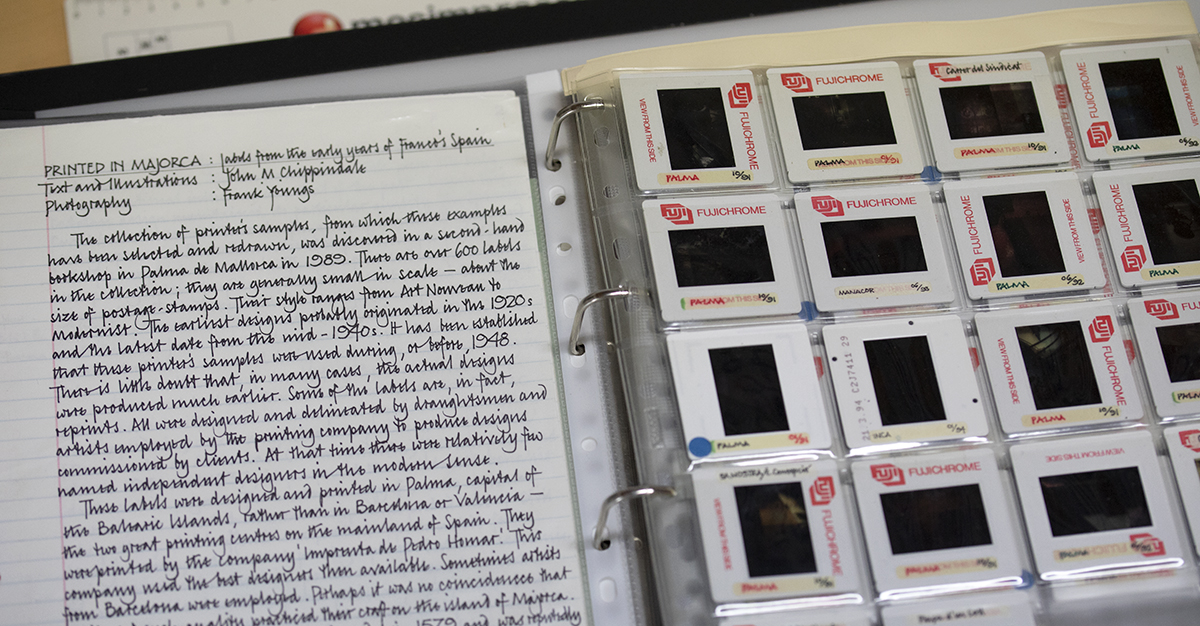 PRINTED IN MAJORCA : labels from the early years of Franco's Spain
Text and Illustrations : John M Chippindale
Photography : Frank Youngs
The collection of printer's samples, from which these examples
have been selected and redrawn, was discovered in a second-hand
bookshop in Palma de Mallorca in 1989. There are our 600 labels
in the collection; they are generally small in scale – about the
size of postage-stamps. Their style ranges from Art Nouveau to
Modernist. The earliest designs probably originated in the 1920s
and the latest date from the mid-1940s. It has been established
that these printer's samples were used during, or before, 1948.
There is little doubt that, in many cases, the actual designs
were produced much earlier. Some of the labels are, in fact,
reprints. All were designed and delineated by draughtsmen and
artists employed by the printing company to produce designs
commissioned by clients. At that time there were relatively few
named independent designers in the modern sense.
These labels were designed and printed in Palma, capital of
the Balearic Islands, rather than in Barcelona or Valencia –
the two great printing centres on the mainland of Spain. They
were printed by the company 'Imprenta de Pedro Homar'. This
company used the best designers then available. Sometimes artists
from Barcelona were employed. Perhaps it was no coincidence that
quality practiced their craft on the island of Majorca.
in 1579 and was reputedly
FUJI FUJICHROME
VIEW FROM THIS SIDE
PALMA 10/91
FUJI FUJICHROME
PALMA
FUJI Carrer del Sindicat
PALMA 10/91
FUJI FUJICHROME
VIEW FROM THIS SIDE
PALMA
FUJI FUJICHROME
PALMA 10/91
FUJI FUJICHROME
MANACOR 06/92
FUJI FUJICHROME
VIEW FROM THIS SIDE
PALMA 06/92
FUJI FUJICHROME
PALMA
PALMA
INCA
FUJI FUJICHROME
VIEW FROM THIS SIDE
PALMA 10/91
FUJI
PALMA
FUJI FUJICHROME
VIEW FROM THIS SIDE
PALMA
FUJI FUJICHROME
PALMA
VIEW FROM THIS SIDE
PALMA FUJI